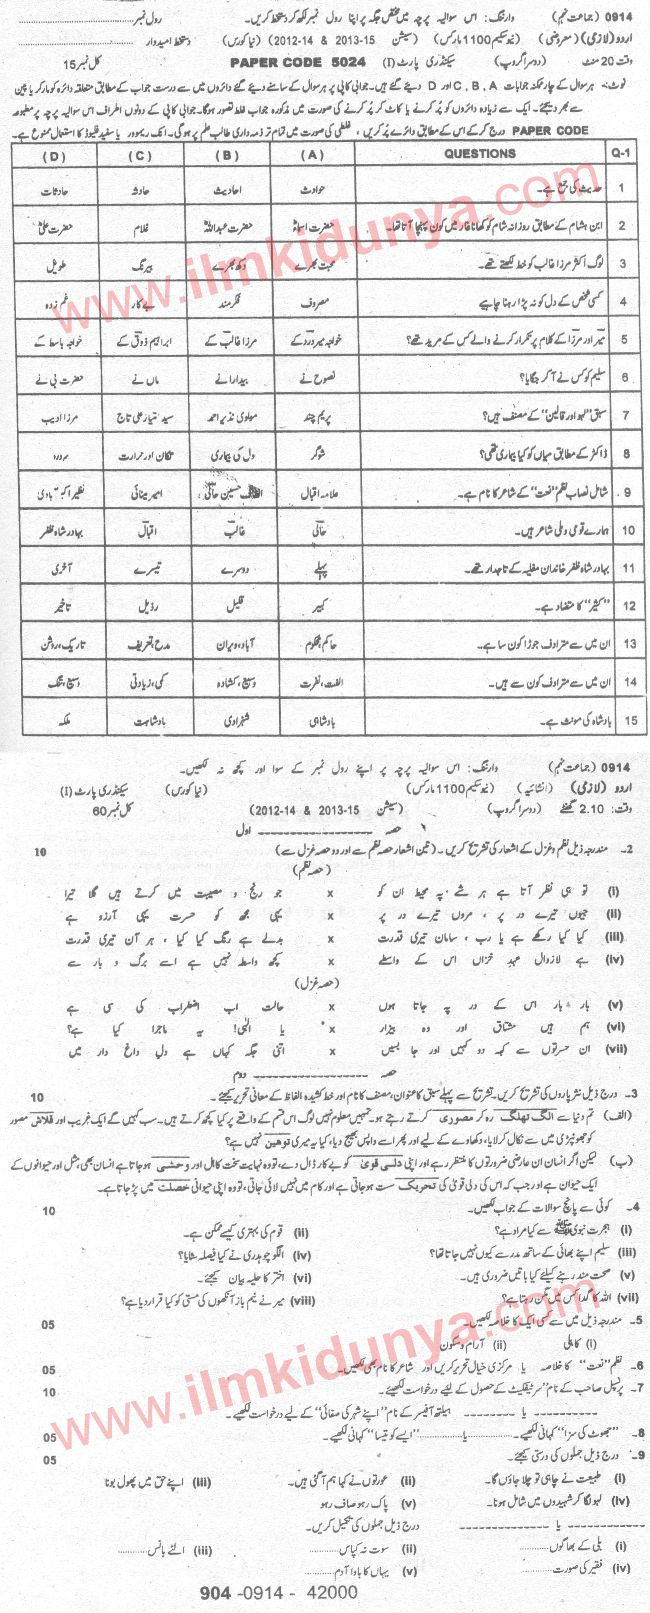 0914 (جماعت نہم) وارننگ: اس سوالیہ پرچہ میں مختص جگہ پر اپنا رول نمبر لکھ کر دستخط کریں۔ رول نمبر
اردو (لازمی) (معروضی) (نیو سکیم 1100 مارکس) (سیشن 2013-15 & 2012-14) (نیا کورس) دستخط امیدوار
وقت 20 منٹ (دوسرا گروپ) سیکنڈری پارٹ (I) PAPER CODE 5024 کل نمبر 15
نوٹ:۔ ہر سوال کے چار ممکنہ جوابات A ، B ، C اور D دیئے گئے ہیں۔ جوابی کاپی پر ہر سوال کے سامنے دیئے گئے دائروں میں سے درست جواب کے مطابق متعلقہ دائرہ کو مارکر یا پین
سے بھر دیجئے۔ ایک سے زیادہ دائروں کو پُر کرنے یا کاٹ کر پُر کرنے کی صورت میں مذکورہ جواب غلط تصور ہوگا۔ جوابی کاپی کے دونوں اطراف اس سوالیہ پرچہ پر مطبوعہ
PAPER CODE درج کر کے اس کے مطابق دائرے پُر کریں، غلطی کی صورت میں تمام تر ذمہ داری طالب علم پر ہوگی۔ انک ریموور یا سفید فلیوڈ کا استعمال ممنوع ہے۔
Q-1 QUESTIONS (A) (B) (C) (D)
1 حدیث کی جمع ہے۔ حوادث احادیث حادثہ حادثات
2 ابن ہشام کے مطابق روزانہ شام کو کھانا غار میں کون پہنچا آتا تھا۔ حضرت اسماءؓ حضرت عبداللہؓ غلام حضرت علیؓ
3 لوگ اکثر مرزا غالب کو خط لکھتے تھے۔ محبت بھرے دکھ بھرے بیرنگ طویل
4 کسی شخص کے دل کو نہ پڑا رہنا چاہیے مصروف فکر مند بے کار غم زدہ
5 میر اور مرزا کے کلام پر تکرار کرنے والے کس کے مرید تھے؟ خواجہ میر درد کے مرزا غالب کے ابراہیم ذوق کے خواجہ باسط کے
6 سلیم کو کس نے آ کر جگایا؟ نصوح نے بیدارا نے ماں نے حضرت بی نے
7 سبق "لہو اور قالین" کے مصنف ہیں؟ پریم چند مولوی نذیر احمد سید امتیاز علی تاج مرزا ادیب
8 ڈاکٹر کے مطابق میاں کو کیا بیماری تھی؟ شوگر دل کی بیماری تکان اور حرارت سر درد
9 شامل نصاب نظم "نعت" کے شاعر کا نام ہے۔ علامہ اقبال الطاف حسین حالی امیر مینائی نظیر اکبر آبادی
10 ہمارے قومی و ملی شاعر ہیں۔ حالی غالب اقبال بہادر شاہ ظفر
11 بہادر شاہ ظفر خاندان مغلیہ کے تاجدار تھے۔ پہلے دوسرے تیسرے آخری
12 "کثیر" کا متضاد ہے۔ کبیر قلیل رذیل تاخیر
13 ان میں سے مترادف جوڑا کون سا ہے۔ حاکم، محکوم آباد، ویران مدح، تعریف تاریک، روشن
14 ان میں سے مترادف کون سے ہیں۔ الفت، نفرت وسیع، کشادہ کمی، زیادتی وسیع، تنگ
15 بادشاہ کی مونث ہے۔ بادشاہی شہزادی بادشاہت ملکہ
0914 (جماعت نہم) وارننگ: اس سوالیہ پرچہ پر اپنے رول نمبر کے سوا اور کچھ نہ لکھیں۔
اردو (لازمی) (انشائیہ) (نیو سکیم 1100 مارکس) (نیا کورس) سیکنڈری پارٹ (I)
وقت: 2.10 گھنٹے (دوسرا گروپ) (سیشن 2013-15 & 2012-14) کل نمبر 60
حصہ اول
2۔ مندرجہ ذیل نظم و غزل کے اشعار کی تشریح کریں۔ (تین اشعار حصہ نظم سے اور دو حصہ غزل سے) 10
(حصہ نظم)
(i) تو ہی نظر آتا ہے ہر شے پہ محیط ان کو x جو رنج و مصیبت میں کرتے ہیں گلا تیرا
(ii) جیوں تیرے در پر ، مروں تیرے در پر x یہی مجھ کو حسرت یہی آرزو ہے
(iii) کیا کیا رکھے ہے یا رب ، سامان تیری قدرت x بدلے ہے رنگ کیا کیا ، ہر آن تیری قدرت
(iv) ہے لازوال عہد خزاں اس کے واسطے x کچھ واسطہ نہیں ہے اسے برگ و بار سے
(حصہ غزل)
(v) بار بار اس کے در پہ جاتا ہوں x حالت اب اضطراب کی سی ہے
(vi) ہم ہیں مشتاق اور وہ بیزار x یا الٰہی! یہ ماجرا کیا ہے؟
(vii) ان حسرتوں سے کہہ دو کہیں اور جا بسیں x اتنی جگہ کہاں ہے دل داغ دار میں
حصہ دوم
3۔ درج ذیل نثر پاروں کی تشریح کریں۔ تشریح سے پہلے سبق کا عنوان، مصنف کا نام اور خط کشیدہ الفاظ کے معانی تحریر کیجئے۔ 10
(الف) تم دنیا سے الگ تھلگ رہ کر مصوری کرتے رہتے ہو۔ تمہیں معلوم نہیں لوگ اس قسم کے واقعے پر کیا کچھ کرتے ہیں۔ سب کہیں گے ایک غریب اور قلاش مصور
کو جھونپڑی میں سے نکال کر لایا، دکھاوے کے لیے اور پھر اسے واپس بھیج دیا، کیا یہ میری توہین نہیں ہے؟
(ب) لیکن اگر انسان ان عارضی ضرورتوں کا منتظر رہے اور اپنی دلی قویٰ کو بے کار ڈال دے، تو وہ نہایت سخت کاہل اور وحشی ہو جاتا ہے انسان بھی، مثل اور حیوانوں کے
ایک حیوان ہے اور جب کہ اس کی دلی قویٰ کی تحریک سست ہو جاتی ہے اور کام میں نہیں لائی جاتی، تو وہ اپنی حیوانی خصلت میں پڑ جاتا ہے۔
4۔ کوئی سے پانچ سوالات کے جواب لکھیں۔ 10
(i) ہجرت نبویﷺ سے کیا مراد ہے؟ (ii) قوم کی بہتری کیسے ممکن ہے۔
(iii) سلیم اپنے بھائی کے ساتھ مدرسے کیوں نہیں جاتا تھا؟ (iv) الگو چوہدری نے کیا فیصلہ سنایا؟
(v) صحت مند رہنے کیلئے کیا باتیں ضروری ہیں۔ (vi) اختر کا حلیہ بیان کیجئے۔
(vii) اللہ کا گدا کس میں مگن رہتا ہے؟ (viii) میر نے نیم باز آنکھوں کی مستی کو کیا قرار دیا ہے؟
5۔ مندرجہ ذیل میں سے کسی ایک کا خلاصہ لکھیں۔ 05
(i) کاہلی (ii) آرام و سکون
6۔ نظم "نعت" کا خلاصہ یا مرکزی خیال تحریر کریں اور شاعر کا نام بھی لکھیں۔ 05
7۔ پرنسپل صاحب کے نام "سرٹیفکیٹ کے حصول کے لیے درخواست لکھیئے۔ 10
یا ہیلتھ آفیسر کے نام "اپنے شہر کی صفائی" کے لیے درخواست لکھیے۔
8۔ "جھوٹ کی سزا" کہانی لکھیے۔ یا "ایسے کو تیسا" کہانی لکھیے۔ 05
9۔ درج ذیل جملوں کی درستی کیجئے۔ 05
(i) طبیعت نے چاہی تو چلا جاؤں گا۔ (ii) عورتوں نے کہا ہم آگئی ہیں۔ (iii) اپنے حق میں پھول بونا
(iv) لہو لگا کر شہیدوں میں شامل ہونا۔ (v) پاک رہو صاف رہو
یا درج ذیل جملوں کی تکمیل کریں۔
(i) بلی کے بھاگوں (ii) سوت نہ کپاس (iii) الٹے بانس
(iv) فقیر کی صورت (v) یہاں کا باوا آدم
904 -0914 - 42000
www.ilmkidunya.com
www.ilmkidunya.com